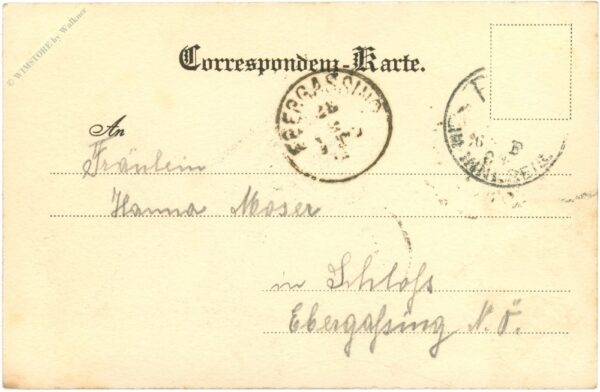 © WIMSTORE by Walkner
Correspondenz-Karte.
EBERGASSING
An
Fräulein
Hanna Moser
in Schloſs
Ebergaſsing N. Ö.